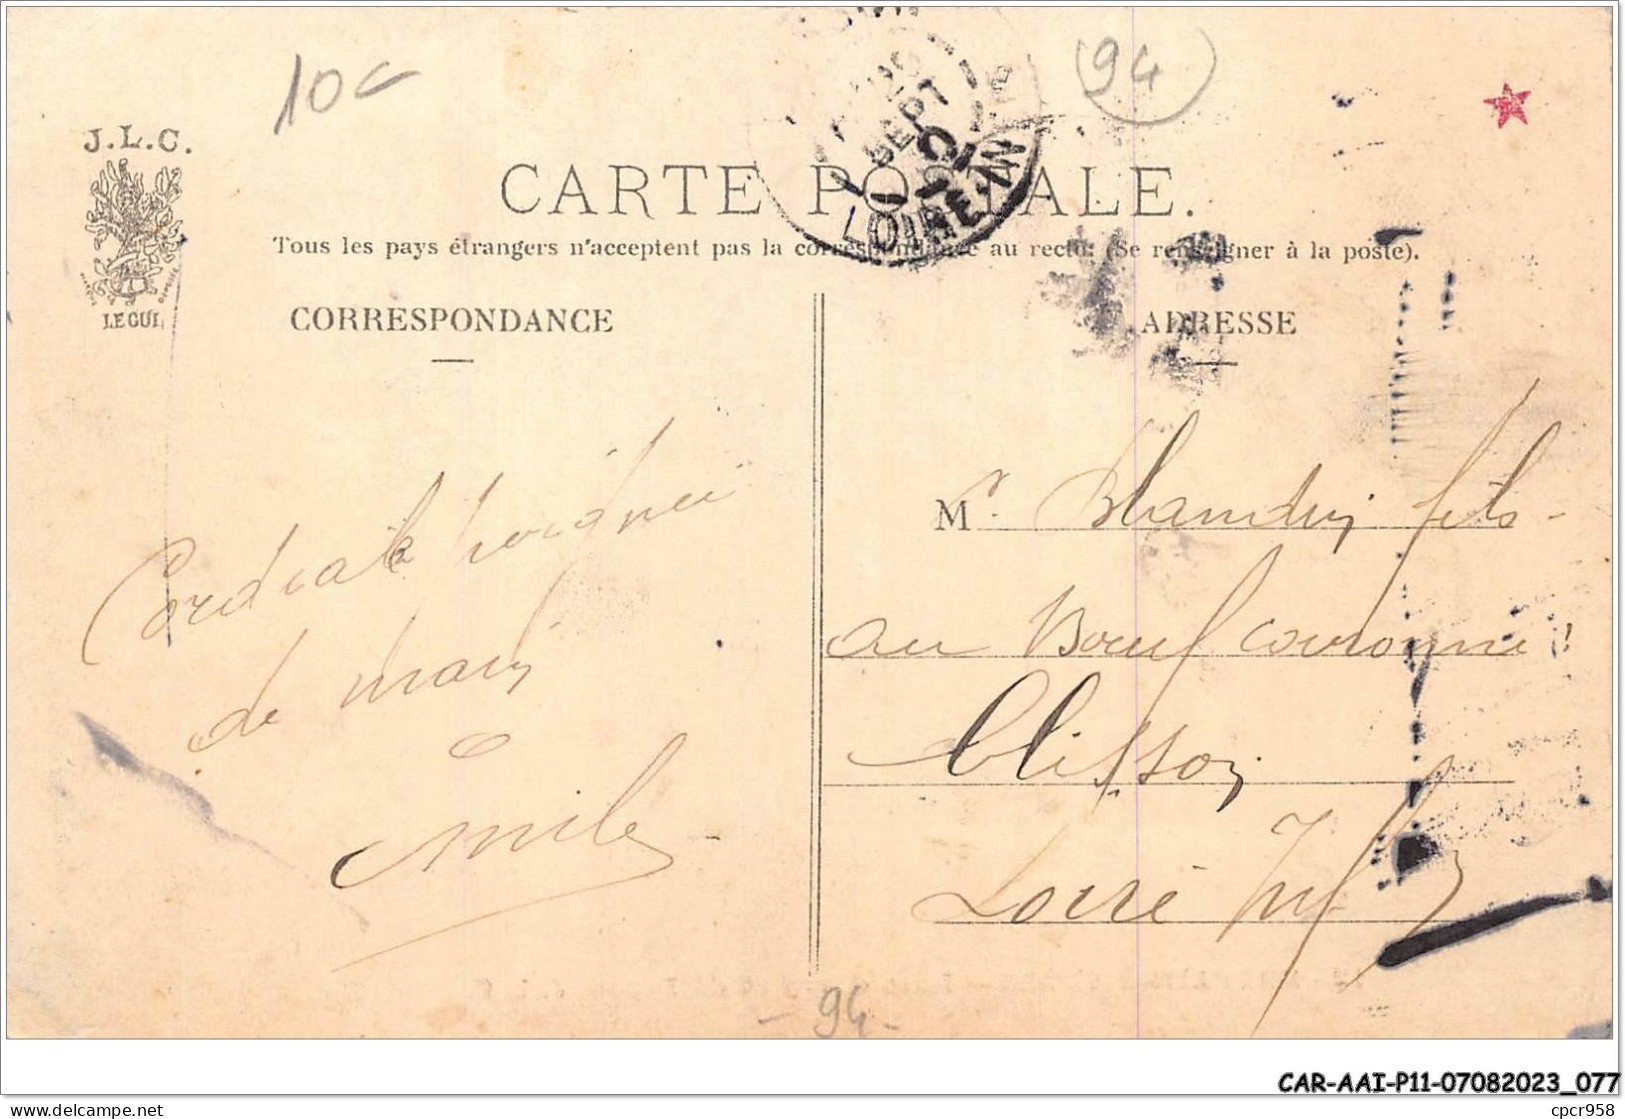 10c
94
J.L.C.
LE GUI
SEPT
LOIRE-INF
CARTE POSTALE.
Tous les pays étrangers n'acceptent pas la correspondance au recto. (Se renseigner à la poste).
CORRESPONDANCE
ADRESSE
Cordiale poignée
de main
Emile
Mr. Blandin fils
au Boeuf couronné
Clisson
Loire Infre
- 94 -
CAR-AAI-P11-07082023_077
www.delcampe.net
cpcr958